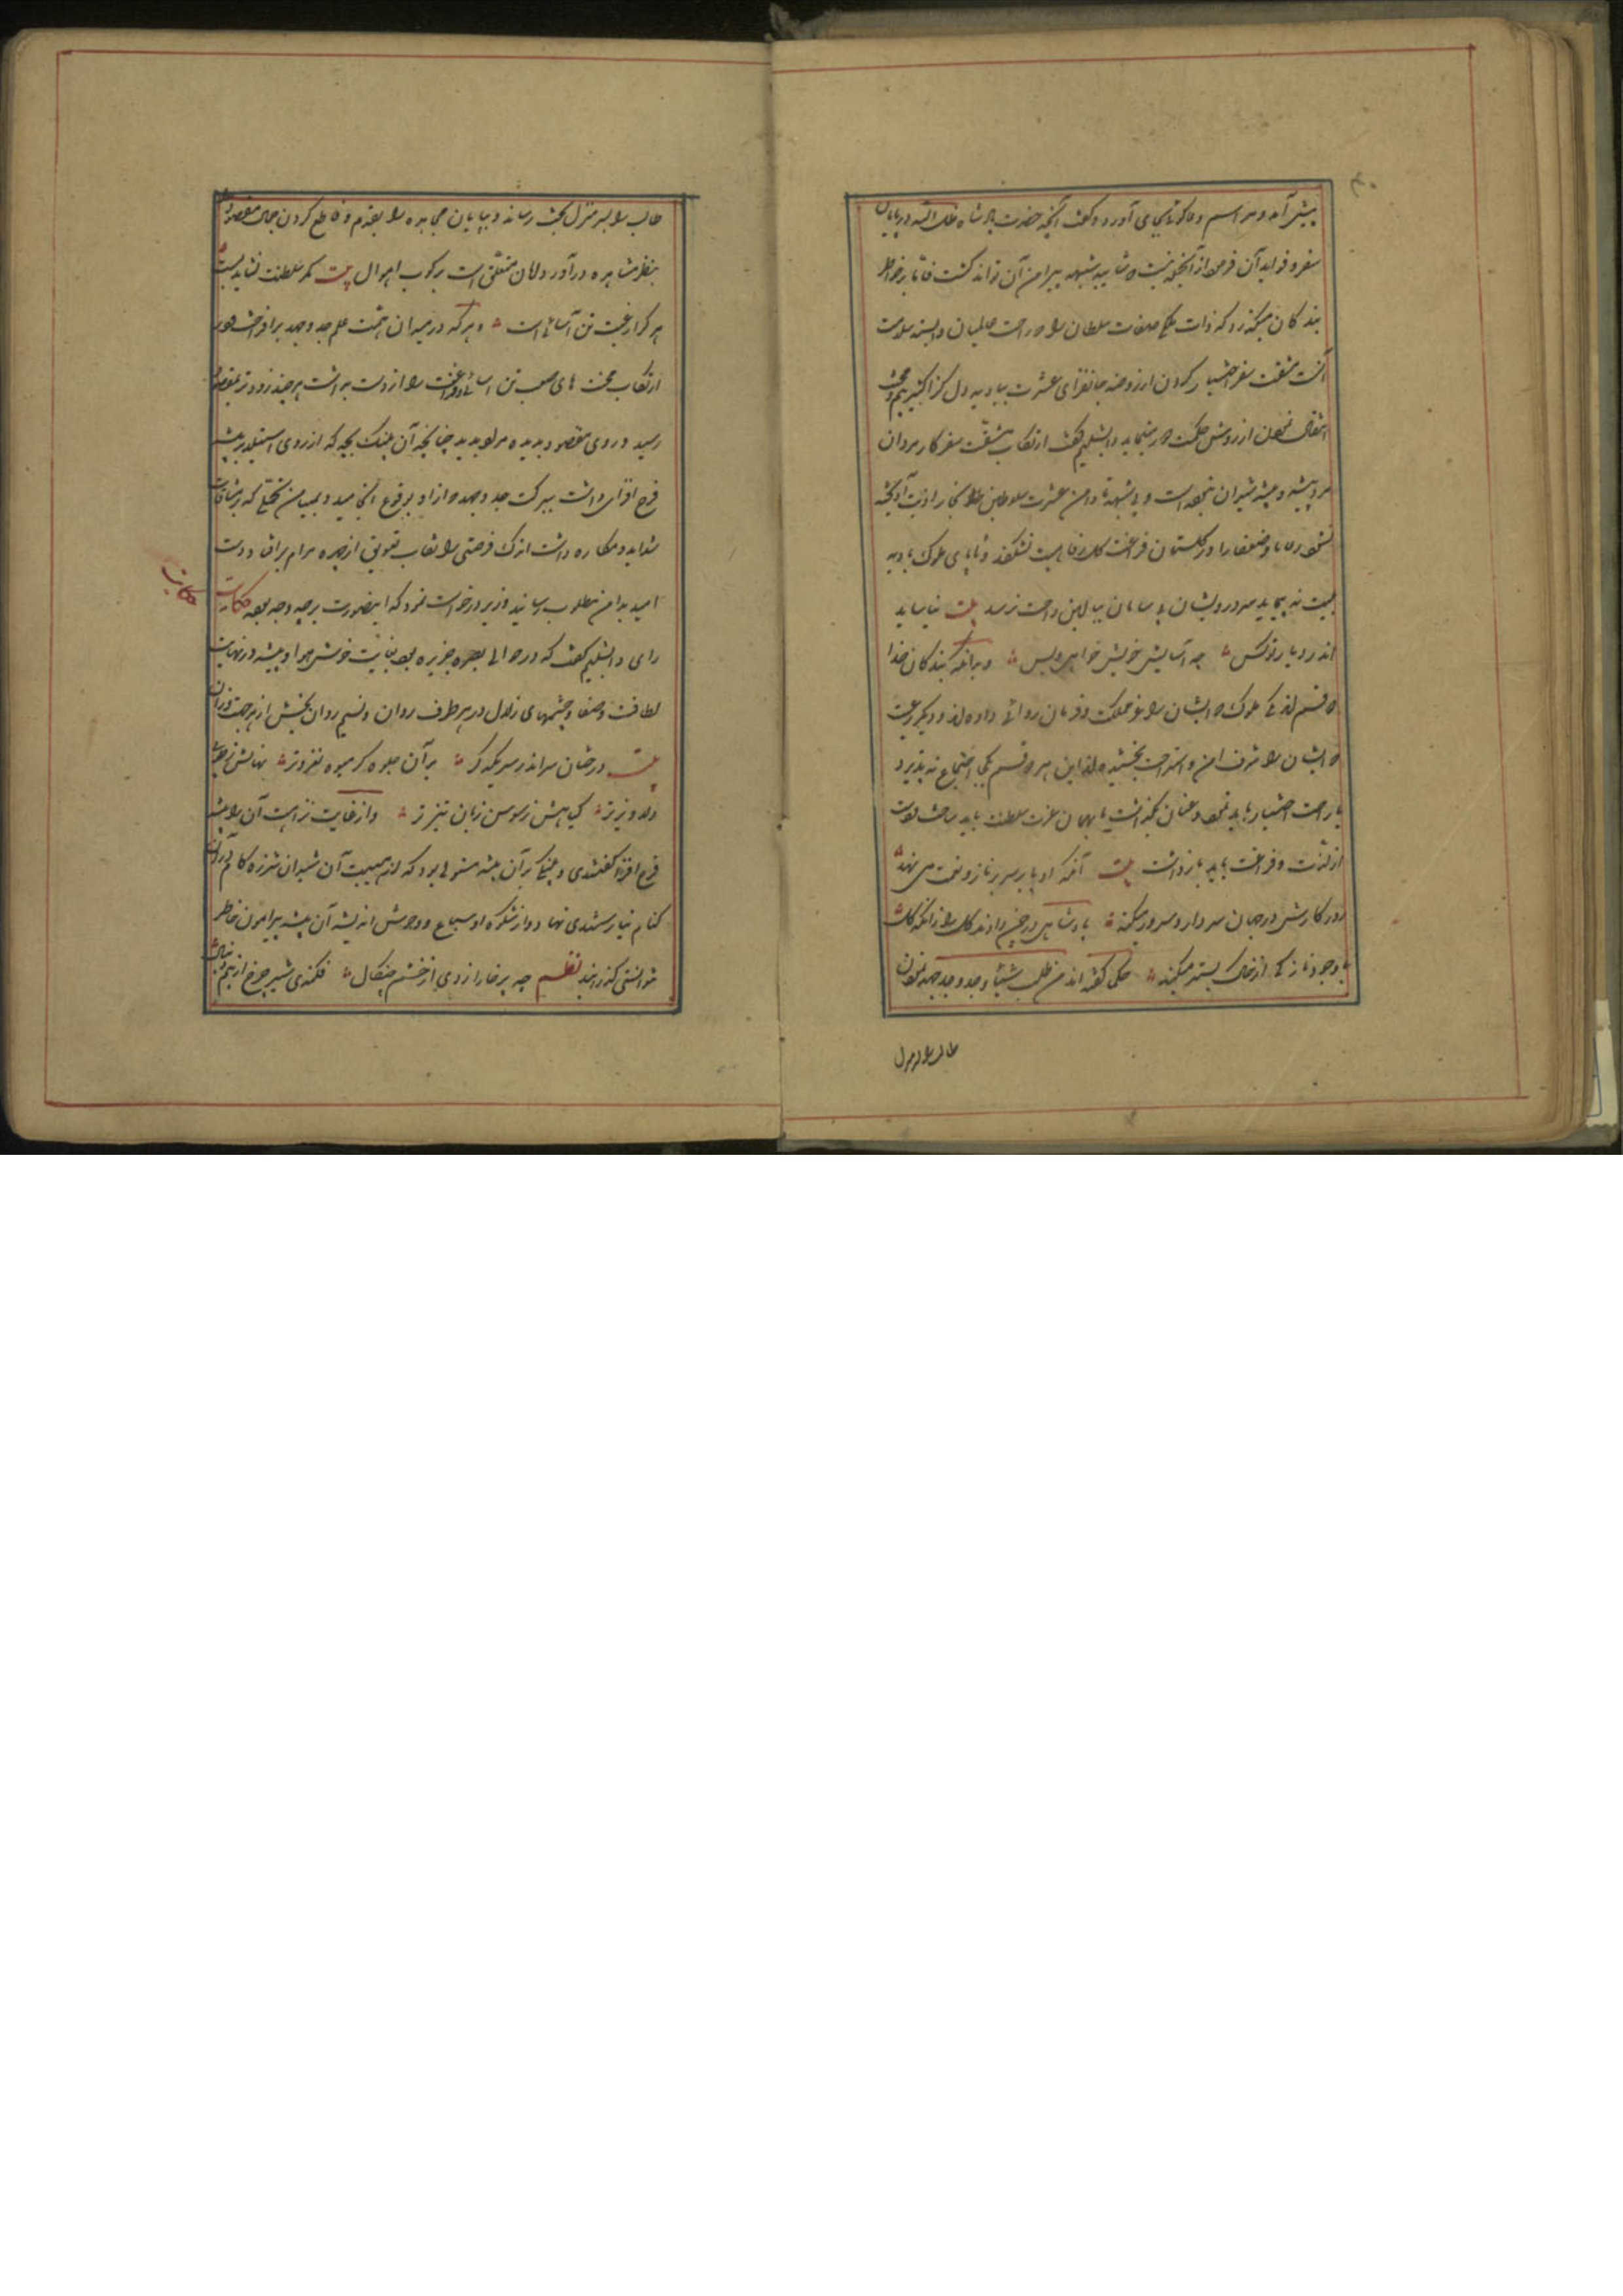 پیش آمد و مراسم دعاگوئی بجای آورد و گفت آنچه حضرت پادشاه ظل الله در باب
سفر و فواید آن فرمود از آنجمله نیست که شایبه شبهه پیرامن آن تواند گشت فاما بر خاطر
بندگان میگذرد که ذات ملکی صفات سلطان را که راحت عالمیان وابسته سلامت
آنست مشقت سفر اختیار کردن از روضه جانفزای عشرت ببادیه دل گزا
انتقال نمودن از روش حکمت دور مینماید دابشلیم گفت ارتکاب مشقت سفر کار مردان
مرد پیشه و بیشه شیران
رعایا و ضعفا را در گلستان فراغت گل رفاهیت نشکفد و تا پای ملوک بادیه
نه پیماید سر درویشان بی سامان ببالین راحت نرسد بیت نیاساید
اندر دیار تو کس چو آسایش خویش خواهی و بس و بدانکه بندگان خدا
دو قسم اند یکی ملوک که ایشان را عز مملکت و فرمان روائی داده اند و دیگر رعیت
که ایشان را شرف امن و استراحت بخشیده اند این هر دو قسم یکجا اجتماع نه پذیرد
یا راحت اختیار باید نمود و عنان عزت سلطنت باید
از لذت و فراغت باید بازداشت بیت آنکه او پا بر سر ناز و نعمت می نهد
روزگارش در جهان سردار و سرور میکند پادشاهی در چمن دادند گل را زانکه گل
با وجود نازکی از خار بستر میکند حکما گفته اند من طلب شیئا و جد وجد جهد نمودن
طالب را بسر منزل
طالب را بسر منزل بخت رساند و بپایان مجاهده را بقدم قطع کردن جمال مقصود
بنظر مشاهده درآورد و امان متعلق است برکوب اهوال بیت کمر سلطنت نشاید بست
هر کرا رغبت تن آسانی است و هر که در میدان همت علم جد و جهد برافراخت و
ارتکاب محنت های صعب تن آسانی و فراغت را از دست بداشت هر چند زودتر بمقصود
رسید و روی مقصود بدیده مراد بدید چنانچه آن پلنگ بچه که از روی استیلا بر بیشه
فرح افزای داشت ببرکت جد و جهد که از او بوقوع انجامید و بمیامن تحمل که بر مشاق
شداید و مکاره داشت اندک فرصتی را نقاب تعویق از چهره مرام برافتاد و دست
امید بدامن مطلوب رسانید وزیر درخواست نمود که اینصورت بر چه وجه بوده حکایت
حکایت
رای دابشلیم گفت که در حوالی بصره جزیره بود بغایت خوش هوا و بیشه در نهایت
لطافت و صفا و چشمهای زلال در هر طرف روان و نسیم روان بخش از هر جهت وزان
بیت درختان سر اندر سر یکدگر بر آن جلوه گر میوه نغزتر نهالش ز طوبی
دلاویزتر گیاهش ز سوسن زبان تیزتر و از غایت نزاهت آن را بیشه
فرح افزا گفتندی و پلنگی بر آن بیشه مستولی بود که از هیبت آن شیران شرزه گام در آن
کنام نیارستندی نهاد و از شکوه او سباع و وحوش اندیشه آن بیشه پیرامون خاطر
نتوانستی گذرانید نظم چو بر خارا زدی از خشم چنگال فکندی شیر چرخ از بیم